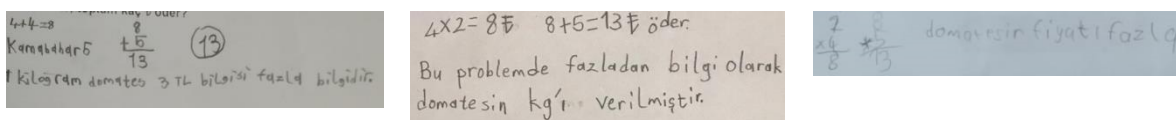 4+4=8
Karnabahar 5
8
+5
13
13
1 kilogram domates 3 TL bilgisi fazla bilgidir.
4x2=8₺ 8+5=13₺ öder.
Bu problemde fazladan bilgi olarak
domatesin kg'ı verilmiştir.
2
x4
8
13
domatesin fiyatı fazla